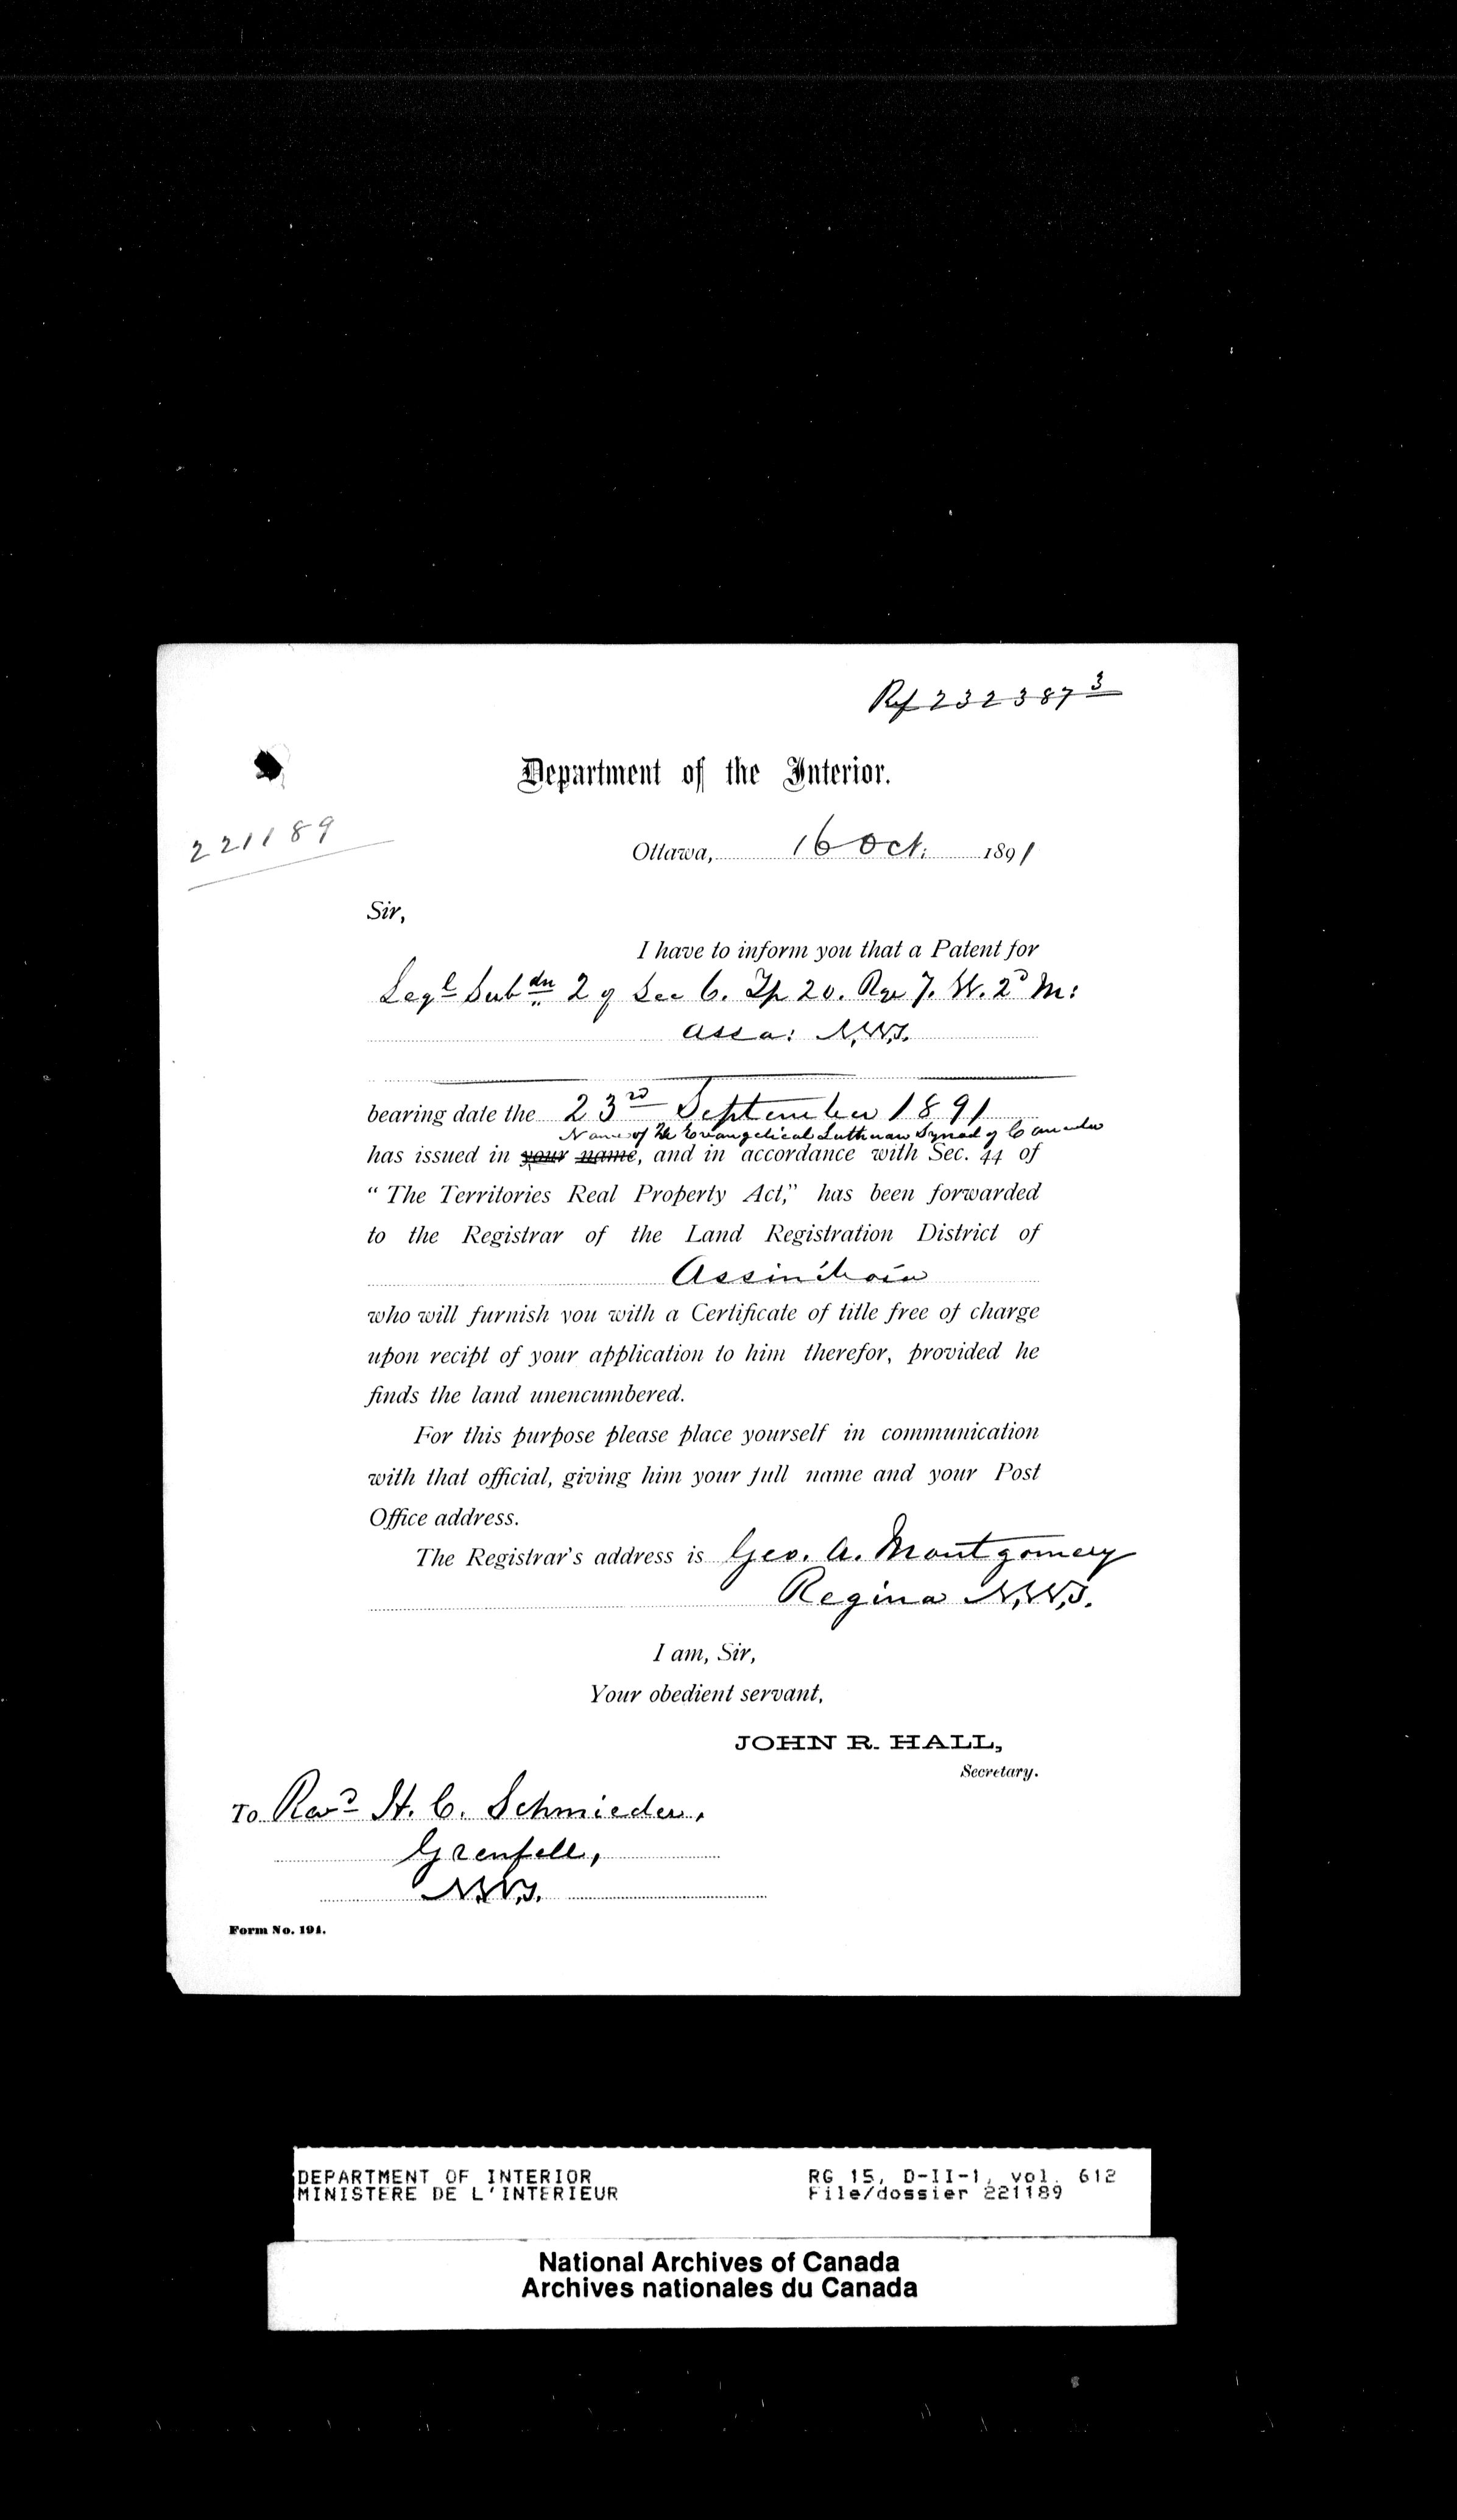 Ref 232387 3
Department of the Interior.
221189
Ottawa, 16 Oct. 1891
Sir,
I have to inform you that a Patent for
Legl Subdn 2 of Sec 6. Tp 20. Rge 7. W. 2D M:
Assa: N.W.T.
bearing date the 23rd September 1891
Name of the Evangelical Lutheran Synod of Canada
has issued in your name, and in accordance with Sec. 44 of
“ The Territories Real Property Act,” has been forwarded
to the Registrar of the Land Registration District of
Assiniboia
who will furnish you with a Certificate of title free of charge
upon recipt of your application to him therefor, provided he
finds the land unencumbered.
For this purpose please place yourself in communication
with that official, giving him your full name and your Post
Office address.
The Registrar's address is Geo. A. Montgomery
Regina N.W.T.
I am, Sir,
Your obedient servant,
JOHN R. HALL,
Secretary.
To Revd H. C. Schmieder,
Grenfell,
N.W.T.
Form No. 194.
DEPARTMENT OF INTERIOR RG 15, D-II-1, vol. 612
MINISTERE DE L'INTERIEUR File/dossier 221189
National Archives of Canada
Archives nationales du Canada